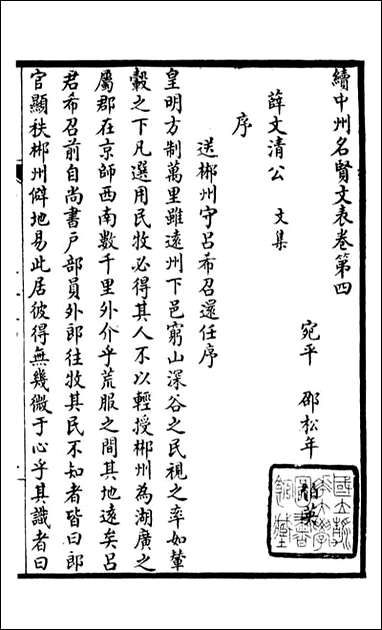 續中州名賢文表卷第四
宛平 邵松年 輯英
薛文清公 文集
序
送郴州守呂希召還任序
皇明方制萬里雖遠州下邑窮山深谷之民視之率如輦
轂之下凡選用民牧必得其人不以輕授郴州為湖廣之
屬郡在京師西南數千里外介乎荒服之間其地遠矣呂
君希召前自尚書戶部員外郎往牧其民不知者皆曰郎
官顯秩郴州僻地易此居彼得無幾微于心乎其識者曰